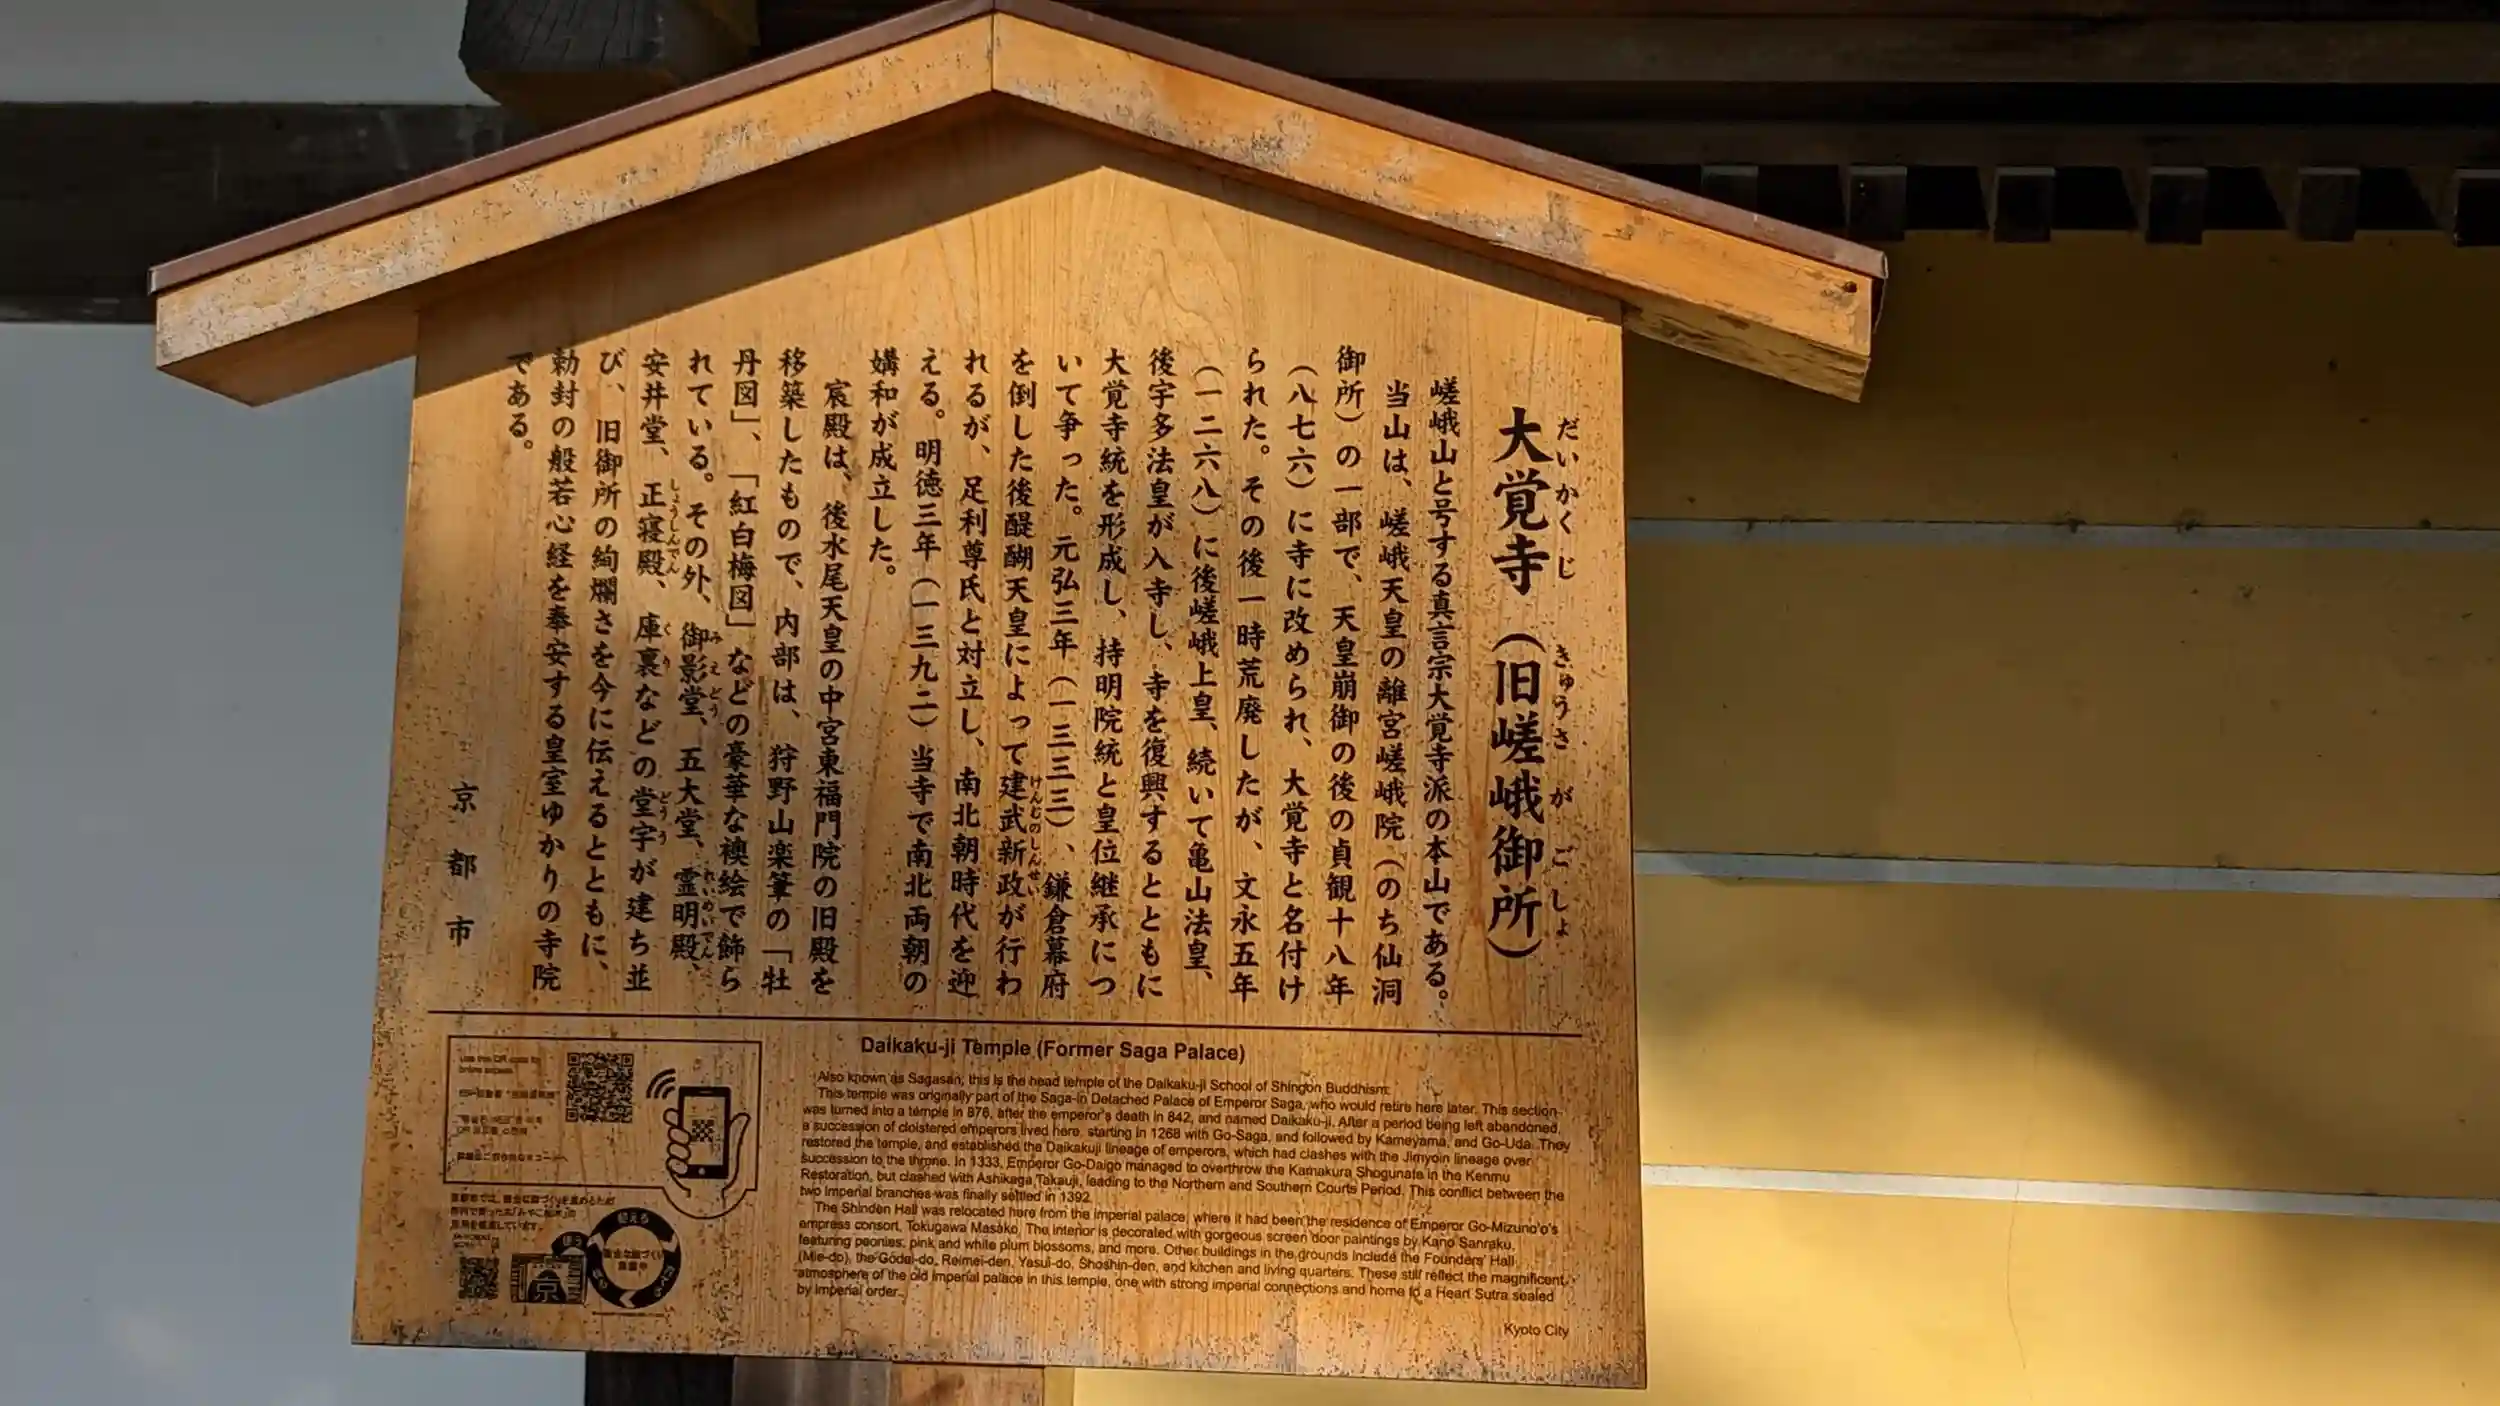 大覚寺(旧嵯峨御所)
だいかくじ きゅうさがごしょ
嵯峨山と号する真言宗大覚寺派の本山である。
当山は、嵯峨天皇の離宮嵯峨院(のち仙洞
御所)の一部で、天皇崩御の後の貞観十八年
(八七六)に寺に改められ、大覚寺と名付け
られた。その後一時荒廃したが、文永五年
(一二六八)に後嵯峨上皇、続いて亀山法皇、
後宇多法皇が入寺し、寺を復興するとともに
大覚寺統を形成し、持明院統と皇位継承につ
いて争った。元弘三年(一三三三)、鎌倉幕府
を倒した後醍醐天皇によって建武新政が行わ
けんむのしんせい
れるが、足利尊氏と対立し、南北朝時代を迎
える。明徳三年(一三九二)当寺で南北両朝の
媾和が成立した。
宸殿は、後水尾天皇の中宮東福門院の旧殿を
移築したもので、内部は、狩野山楽筆の「牡
丹図」、「紅白梅図」などの豪華な襖絵で飾ら
れている。その外、御影堂、五大堂、霊明殿、
みえどう れいめいでん
安井堂、正寝殿、庫裏などの堂宇が建ち並
しょうしんでん くり どうう
び、旧御所の絢爛さを今に伝えるとともに、
勅封の般若心経を奉安する皇室ゆかりの寺院
である。
京都市
Daikaku-ji Temple (Former Saga Palace)
Also known as Sagasan, this is the head temple of the Daikaku-ji School of Shingon Buddhism.
This temple was originally part of the Saga-in Detached Palace of Emperor Saga, who would retire here later. This section
was turned into a temple in 876, after the emperor's death in 842, and named Daikaku-ji. After a period being left abandoned,
a succession of cloistered emperors lived here, starting in 1268 with Go-Saga, and followed by Kameyama, and Go-Uda. They
restored the temple, and established the Daikakuji lineage of emperors, which had clashes with the Jimyoin lineage over
succession to the throne. In 1333, Emperor Go-Daigo managed to overthrow the Kamakura Shogunate in the Kenmu
Restoration, but clashed with Ashikaga Takauji, leading to the Northern and Southern Courts Period. This conflict between the
two imperial branches was finally settled in 1392.
The Shinden Hall was relocated here from the imperial palace, where it had been the residence of Emperor Go-Mizuno'o's
empress consort, Tokugawa Masako. The interior is decorated with gorgeous screen door paintings by Kano Sanraku,
featuring peonies, pink and white plum blossoms, and more. Other buildings in the grounds include the Founders' Hall
(Mie-do), the Godai-do, Reimei-den, Yasui-do, Shoshin-den, and kitchen and living quarters. These still reflect the magnificent
atmosphere of the old imperial palace in this temple, one with strong imperial connections and home to a Heart Sutra sealed
by imperial order.
Kyoto City
京